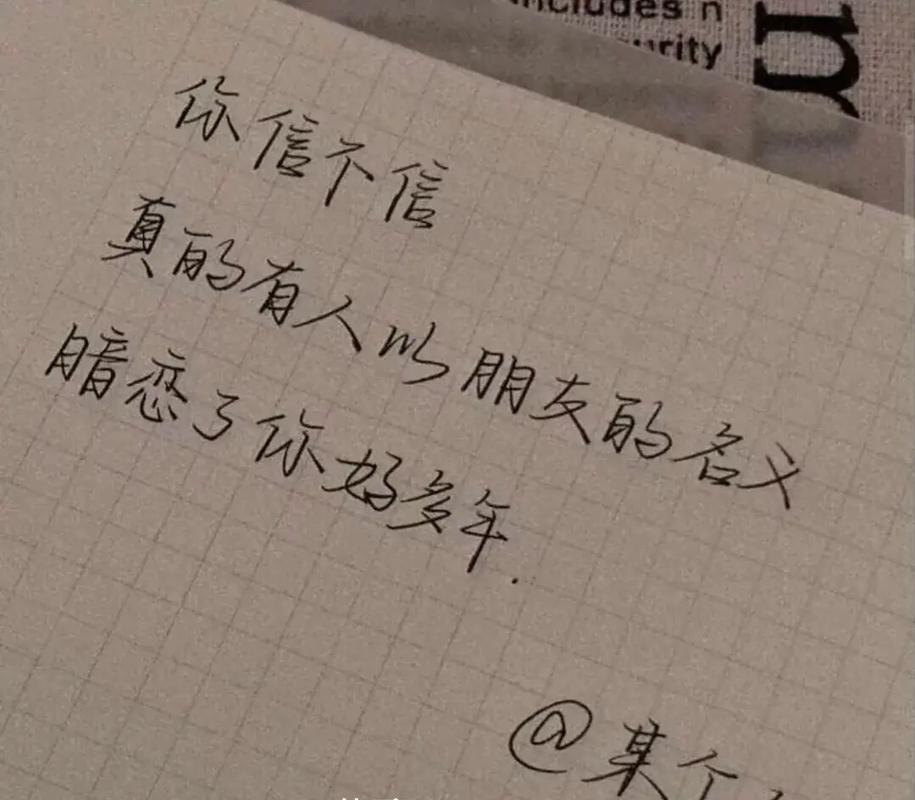 includes n
m
你信不信
真的有人以朋友的名义
暗恋了你好多年.
@某个